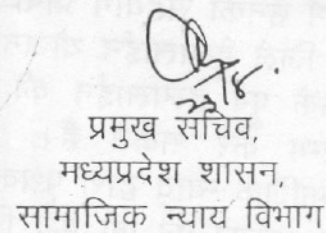 प्रमुख सचिव,
मध्यप्रदेश शासन,
सामाजिक न्याय विभाग